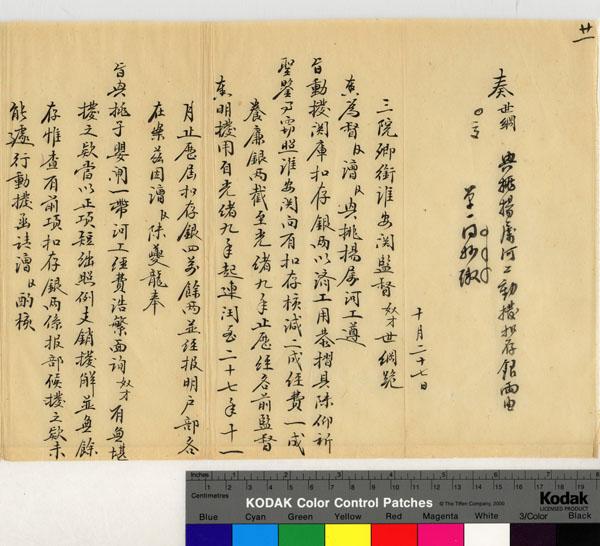 廿
奏 世綱 興挑揚屬河工動撥扣存銀兩由
十月二十七日
三院卿銜淮安関監督奴才世綱跪
奏為督臣漕臣興挑揚屬河工遵
旨動撥関庫扣存銀兩以濟工用恭摺具陳仰祈
聖鑒事竊照淮安関向有扣存核減二成經費一成
養廉銀兩截至光緒九年止歷經各前監督
奏明撥用自光緒九年起連閏至二十七年十一
月止歷屆扣存銀四萬餘兩並經報明戶部各
在案茲因漕臣陳夔龍奉
旨興挑子嬰閘一帶河工經費浩繁面詢奴才有無堪
撥之欵當以正項短絀照例支銷撥解並無餘
存惟查有前項扣存銀兩係報部候撥之欵未
能遽行動撥函請漕臣酌核
Inches 1 2 3 4 5 6 7 8
Centimetres 1 2 3 4 5 6 7 8 9 10 11 12 13 14 15 16 17 18 19
KODAK Color Control Patches © The Tiffen Company, 2000 Kodak
LICENSED PRODUCT
Blue Cyan Green Yellow Red Magenta White 3/Color Black